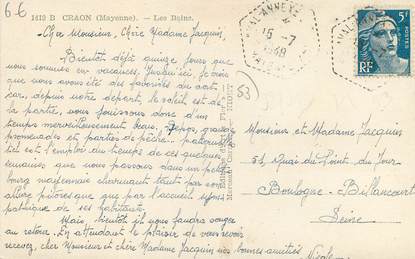 6-6
1412 B CRAON (Mayenne). — Les Bains.
Cher Monsieur, Chère Madame Jacquin,
Bientôt déjà quinze jours que
nous sommes en vacances. Jusqu'ici, je crois
que nous avons été des favorisés du sort
car, depuis notre départ, le soleil est de
la partie, nous jouissons donc d'un
temps merveilleusement beau. Repos, grandes
promenades et parties de pêche
tel est l'emploi du temps de ces quelques
semaines que nous passons dans un petit
bourg mayennais charmant tant par son
allure pittoresque que par l'accueil
sympathique de ses habitants.
Mais, bientôt il nous faudra songer
au retour. En attendant le plaisir de vous revoir
recevez, cher Monsieur et chère Madame Jacquin nos bonnes amitiés
53
15 -7
1948
5F
RF
POSTES
Monsieur et Madame Jacquin
51, Quai du Point du Jour
Boulogne-Billancourt
Seine